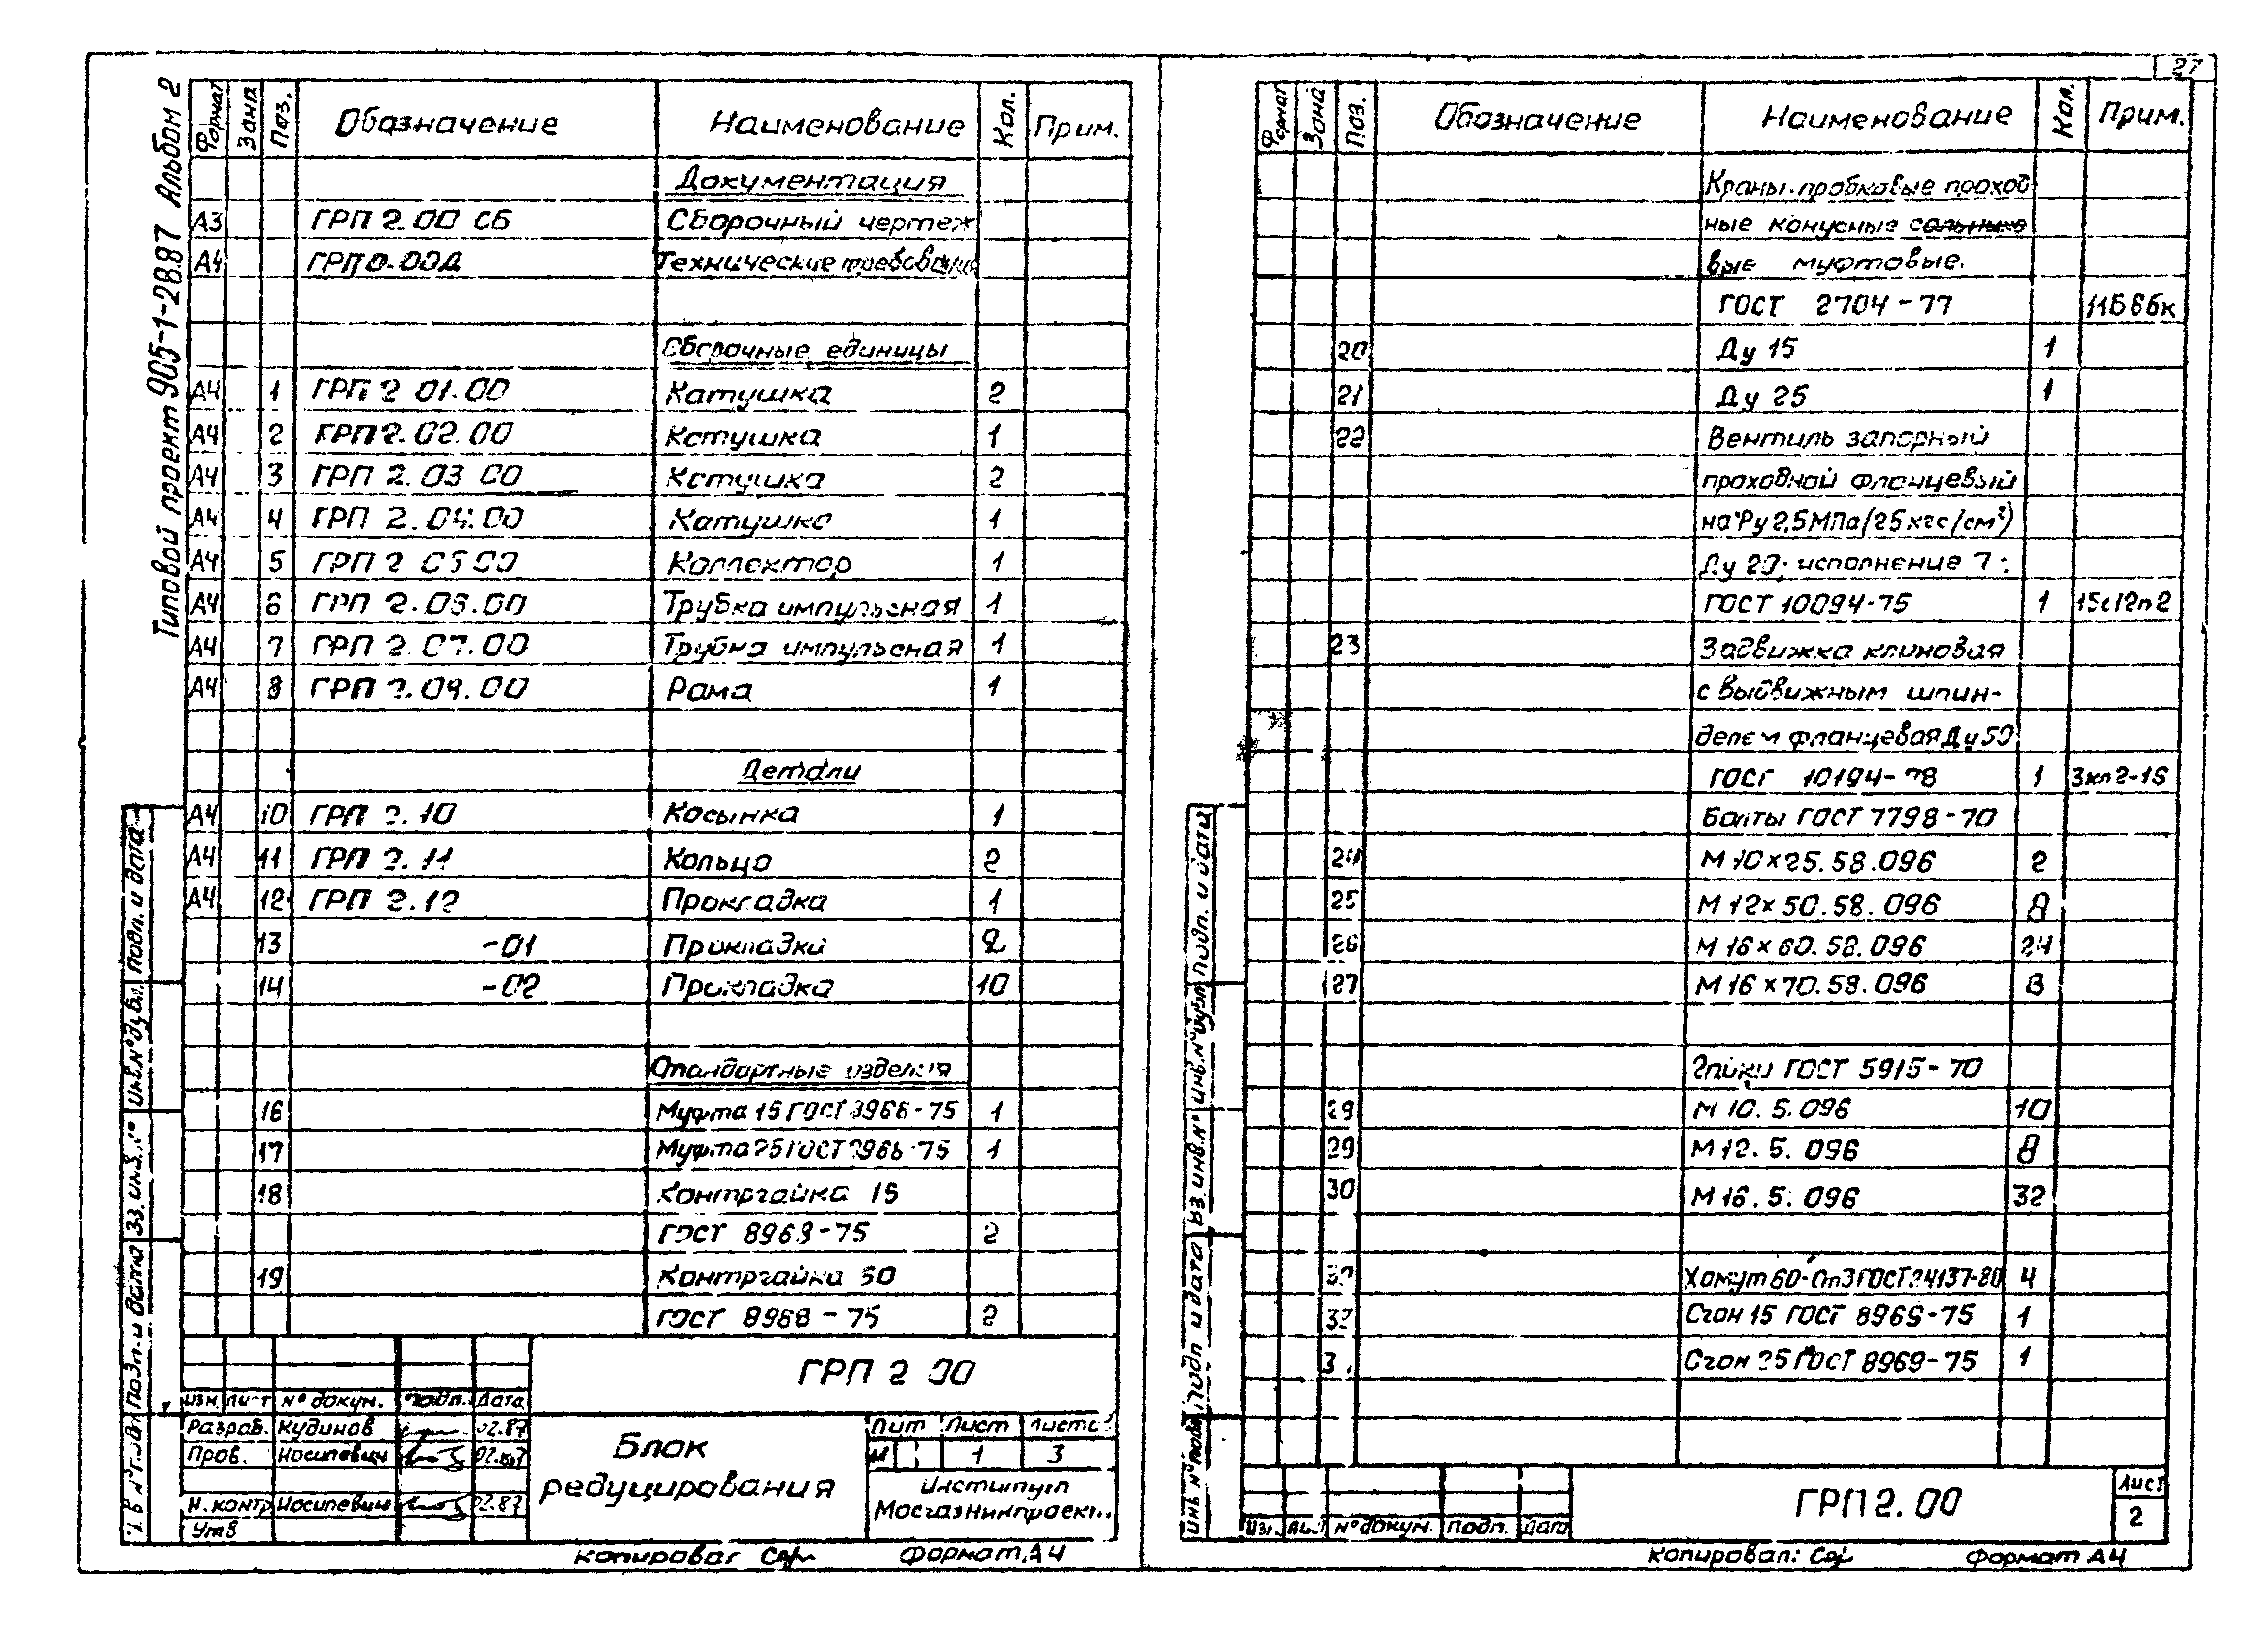 27
Типовой проект 905-1-28.87 Альбом 2
Формат Зона Поз. Обозначение Наименование Кол. Прим.
Документация
А3 ГРП 2.00 СБ Сборочный чертеж
А4 ГРП 0.00Д Технические требования
Сборочные единицы
А4 1 ГРП 2 01.00 Катушка 2
А4 2 ГРП 2.02.00 Катушка 1
А4 3 ГРП 2.03 00 Катушка 2
А4 4 ГРП 2.04.00 Катушка 1
А4 5 ГРП 2 05 00 Коллектор 1
А4 6 ГРП 2.06.00 Трубка импульсная 1
А4 7 ГРП 2.07.00 Трубка импульсная 1
А4 8 ГРП 2.09.00 Рама 1
Детали
А4 10 ГРП 2.10 Косынка 1
А4 11 ГРП 2.11 Кольцо 2
А4 12 ГРП 2.12 Прокладка 1
13 -01 Прокладка 2
14 -02 Прокладка 10
Стандартные изделия
16 Муфта 15 ГОСТ 8966-75 1
17 Муфта 25 ГОСТ 8966-75 1
18 Контргайка 15
ГОСТ 8968-75 2
19 Контргайка 50
ГОСТ 8968-75 2
ГРП 2 00
Изм. Лист № докум. Подп. Дата
Разраб. Кудинов 02.87
Пров. Носилевич 02.87
Н. контр. Носилевич 02.87
Утв
Блок
редуцирования
Лит Лист Листов
И 1 3
Институт
Мосгазниипроект
Копировал Формат А4
Подп. и дата
Инв. № дубл.
Вз. инв. №
Подп. и дата
Инв. № подл.
Формат Зона Поз. Обозначение Наименование Кол. Прим.
Краны пробковые проход
ные конусные сальнико
вые муфтовые.
ГОСТ 2704-77 11Б6бк
20 Ду 15 1
21 Ду 25 1
22 Вентиль запорный
проходной фланцевый
на Ру 2,5МПа(25кгс/см²)
Ду 20; исполнение 7;
ГОСТ 10094-75 1 15с12п2
23 Задвижка клиновая
с выдвижным шпин-
делем фланцевая Ду 50
ГОСТ 10194-78 1 Зкл2-16
Болты ГОСТ 7798-70
24 М 10×25.58.096 2
25 М 12×50.58.096 8
26 М 16×60.58.096 24
27 М 16×70.58.096 8
Гайки ГОСТ 5915-70
29 М 10.5.096 10
29 М 12.5.096 8
30 М 16.5.096 32
32 Хомут 60-Ст3 ГОСТ 24137-80 4
33 Сгон 15 ГОСТ 8969-75 1
3 Сгон 25 ГОСТ 8969-75 1
Изм. Лист № докум. Подп. Дата
ГРП 2.00
Лист
2
Копировал: Формат А4
Подп. и дата
Инв. № дубл.
Вз. инв. №
Подп. и дата
Инв. № подл.